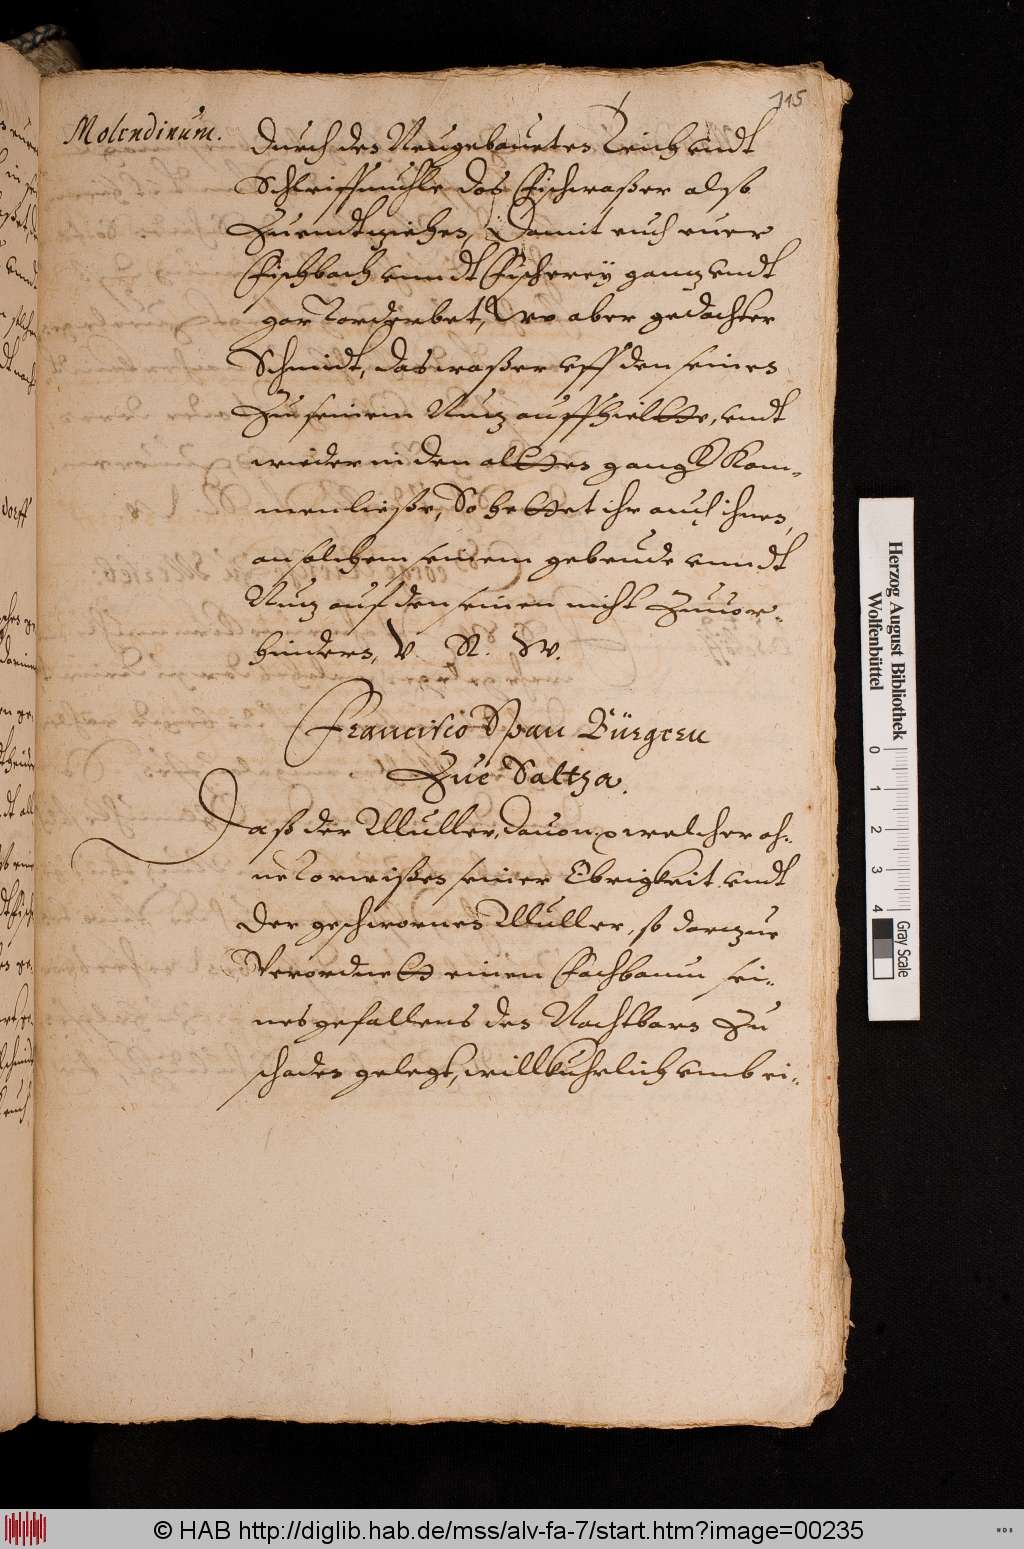 115
Molendinum.
durch den Neugebaueten Teich vndt
Schleiffmuhle das Fischwaßer also
Zuendtziehen, Damit euch euer
Fischbach vnndt Fischerey gantz vndt
gar vorderbet, Wo aber gedachter
Schmidt, das waßer vff den seinen
Zu seinem Nutz auffhielte, vndt
wieder in den alten gangk kom-
men ließe, So hettet ihr auch ihnen,
an solchem seinem gebeude vnndt
Nutz auf den seinen nicht Zuuor-
hindern, V. R. W.
Francisco Span Bürgern
Zue Saltza.
Daß der Muller, dauon welcher oh-
ne vorwißen seiner Obrigkeit vndt
der geschwornen Muller, so darzue
Verordnett einen Fachbaum sei-
nes gefallens den Nachtbarn Zu
schaden gelegt, willkuhrlich vmb ei-
dorff
Herzog August Bibliothek
Wolfenbüttel
0 1 2 3 4
Gray Scale
© HAB http://diglib.hab.de/mss/alv-fa-7/start.htm?image=00235